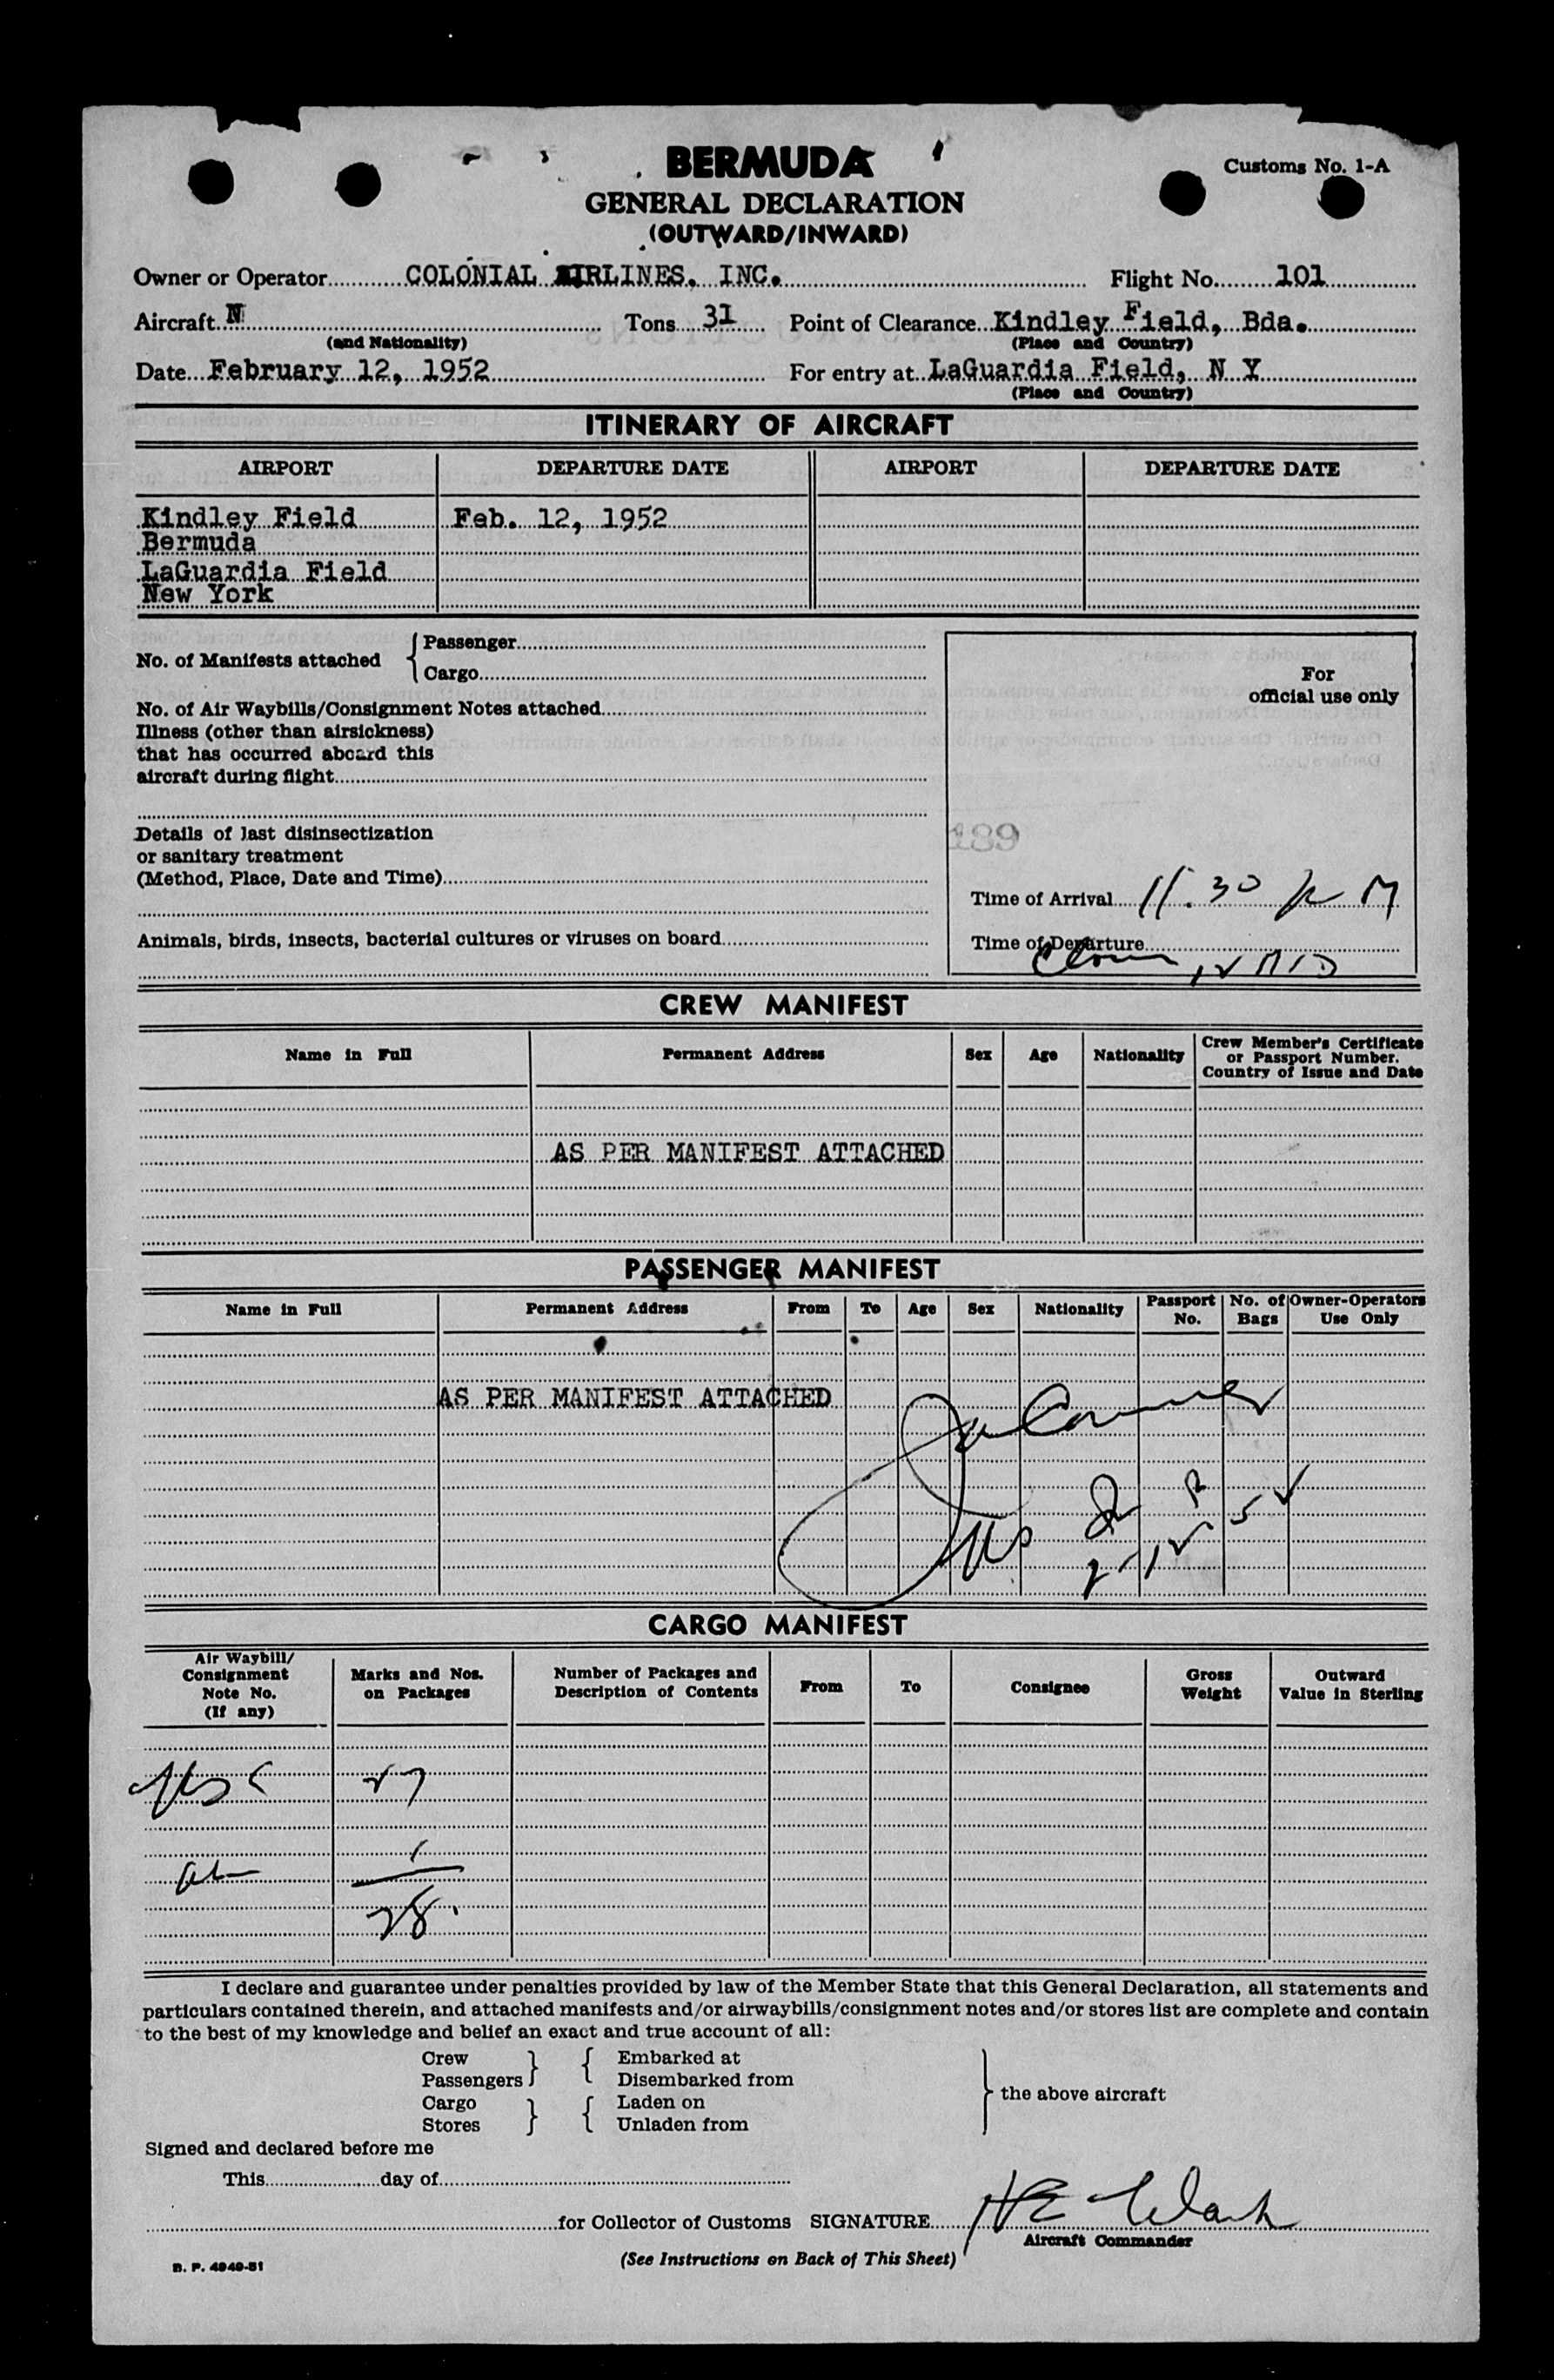 BERMUDA
Customs No. 1-A
GENERAL DECLARATION
(OUTWARD/INWARD)
Owner or Operator COLONIAL AIRLINES, INC. Flight No. 101
Aircraft N Tons 31 Point of Clearance Kindley Field, Bda.
(and Nationality) (Place and Country)
Date February 12, 1952 For entry at LaGuardia Field, N Y
(Place and Country)
ITINERARY OF AIRCRAFT
AIRPORT DEPARTURE DATE AIRPORT DEPARTURE DATE
Kindley Field Feb. 12, 1952
Bermuda
LaGuardia Field
New York
No. of Manifests attached { Passenger
Cargo
For
official use only
No. of Air Waybills/Consignment Notes attached
Illness (other than airsickness)
that has occurred aboard this
aircraft during flight
Details of last disinsectization
or sanitary treatment
(Method, Place, Date and Time)
189
Time of Arrival 11.30 P M
Animals, birds, insects, bacterial cultures or viruses on board
Time of Departure
CREW MANIFEST
Name in Full Permanent Address Sex Age Nationality Crew Member's Certificate
or Passport Number.
Country of Issue and Date
AS PER MANIFEST ATTACHED
PASSENGER MANIFEST
Name in Full Permanent Address From To Age Sex Nationality Passport No. No. of Bags Owner-Operators Use Only
AS PER MANIFEST ATTACHED
CARGO MANIFEST
Air Waybill/
Consignment
Note No.
(If any)
Marks and Nos.
on Packages
Number of Packages and
Description of Contents
From To Consignee
Gross
Weight
Outward
Value in Sterling
27
1
28.
I declare and guarantee under penalties provided by law of the Member State that this General Declaration, all statements and
particulars contained therein, and attached manifests and/or airwaybills/consignment notes and/or stores list are complete and contain
to the best of my knowledge and belief an exact and true account of all:
Crew } { Embarked at
Passengers } { Disembarked from
Cargo } { Laden on
Stores } { Unladen from
} the above aircraft
Signed and declared before me
This day of
for Collector of Customs SIGNATURE
Aircraft Commander
(See Instructions on Back of This Sheet)
B. P. 4949-51